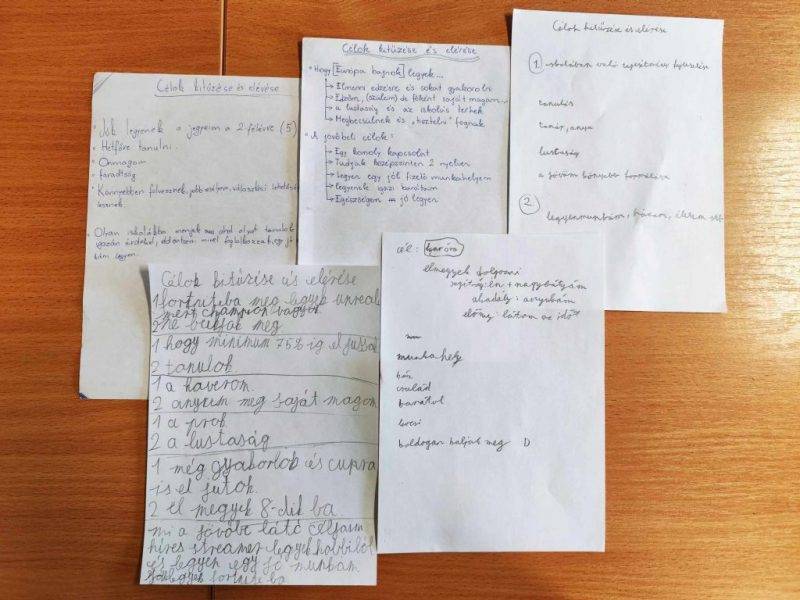 Célok kitűzése és elérése
• Jók legyenek a jegyeim a 2. félévre (5)
• Hétfőre tanulni.
• Önmagam
• fáradtság
• Könnyebben felvesznek, jobb
lesznek.
• Olyan iskolákba menjek ahol olyat tanulok
igazán érdekel,
Célok kitűzése és elérése
• Hogy Európa bajnok legyek...
→ Elmenni edzésre és sokat gyakorolni
→ Edzőm, (szüleim) de főként saját magam...
→ a lustaság és az iskolás terhek
→ Megbecsülnek és "tisztelni" fognak
• A jövőbeli célok:
→ Egy komoly kapcsolat
→ Tudjak középszinten 2 nyelven
→ Legyen egy jól fizető munkahelyem
→ legyenek igazi barátaim
→ Egészségem jó legyen
Célok kitűzése és elérése
1. iskolában való
tanulás
tanár, anya
lustaság
a jövőm könyebb formálása
2.
legyen munkám, házam, életem stb
Célok kitűzése és elérése
1 fortniteba meg legyek unreal
mert champion vagyok
2 ne bukjak meg
1 hogy minimum 75%-ig eljussak
2 tanulok
1 a haverom.
2 anyum meg saját magam
1 a prof.
2 a lustaság
1 még gyakorlok és cupra
is el jutok.
2 el megyek 8-dik ba
mi a jövőbe látó céljaim
híres streamer legyek hobbiból
és legyen egy jó munkám
fortnite ba
cél: karóra
elmegyek dolgozni
segítség: én + nagybátyám
akadály: anyukám
előny: látom az időt
munkahely
ház
család
barátok
kocsi
boldogan haljak meg :D